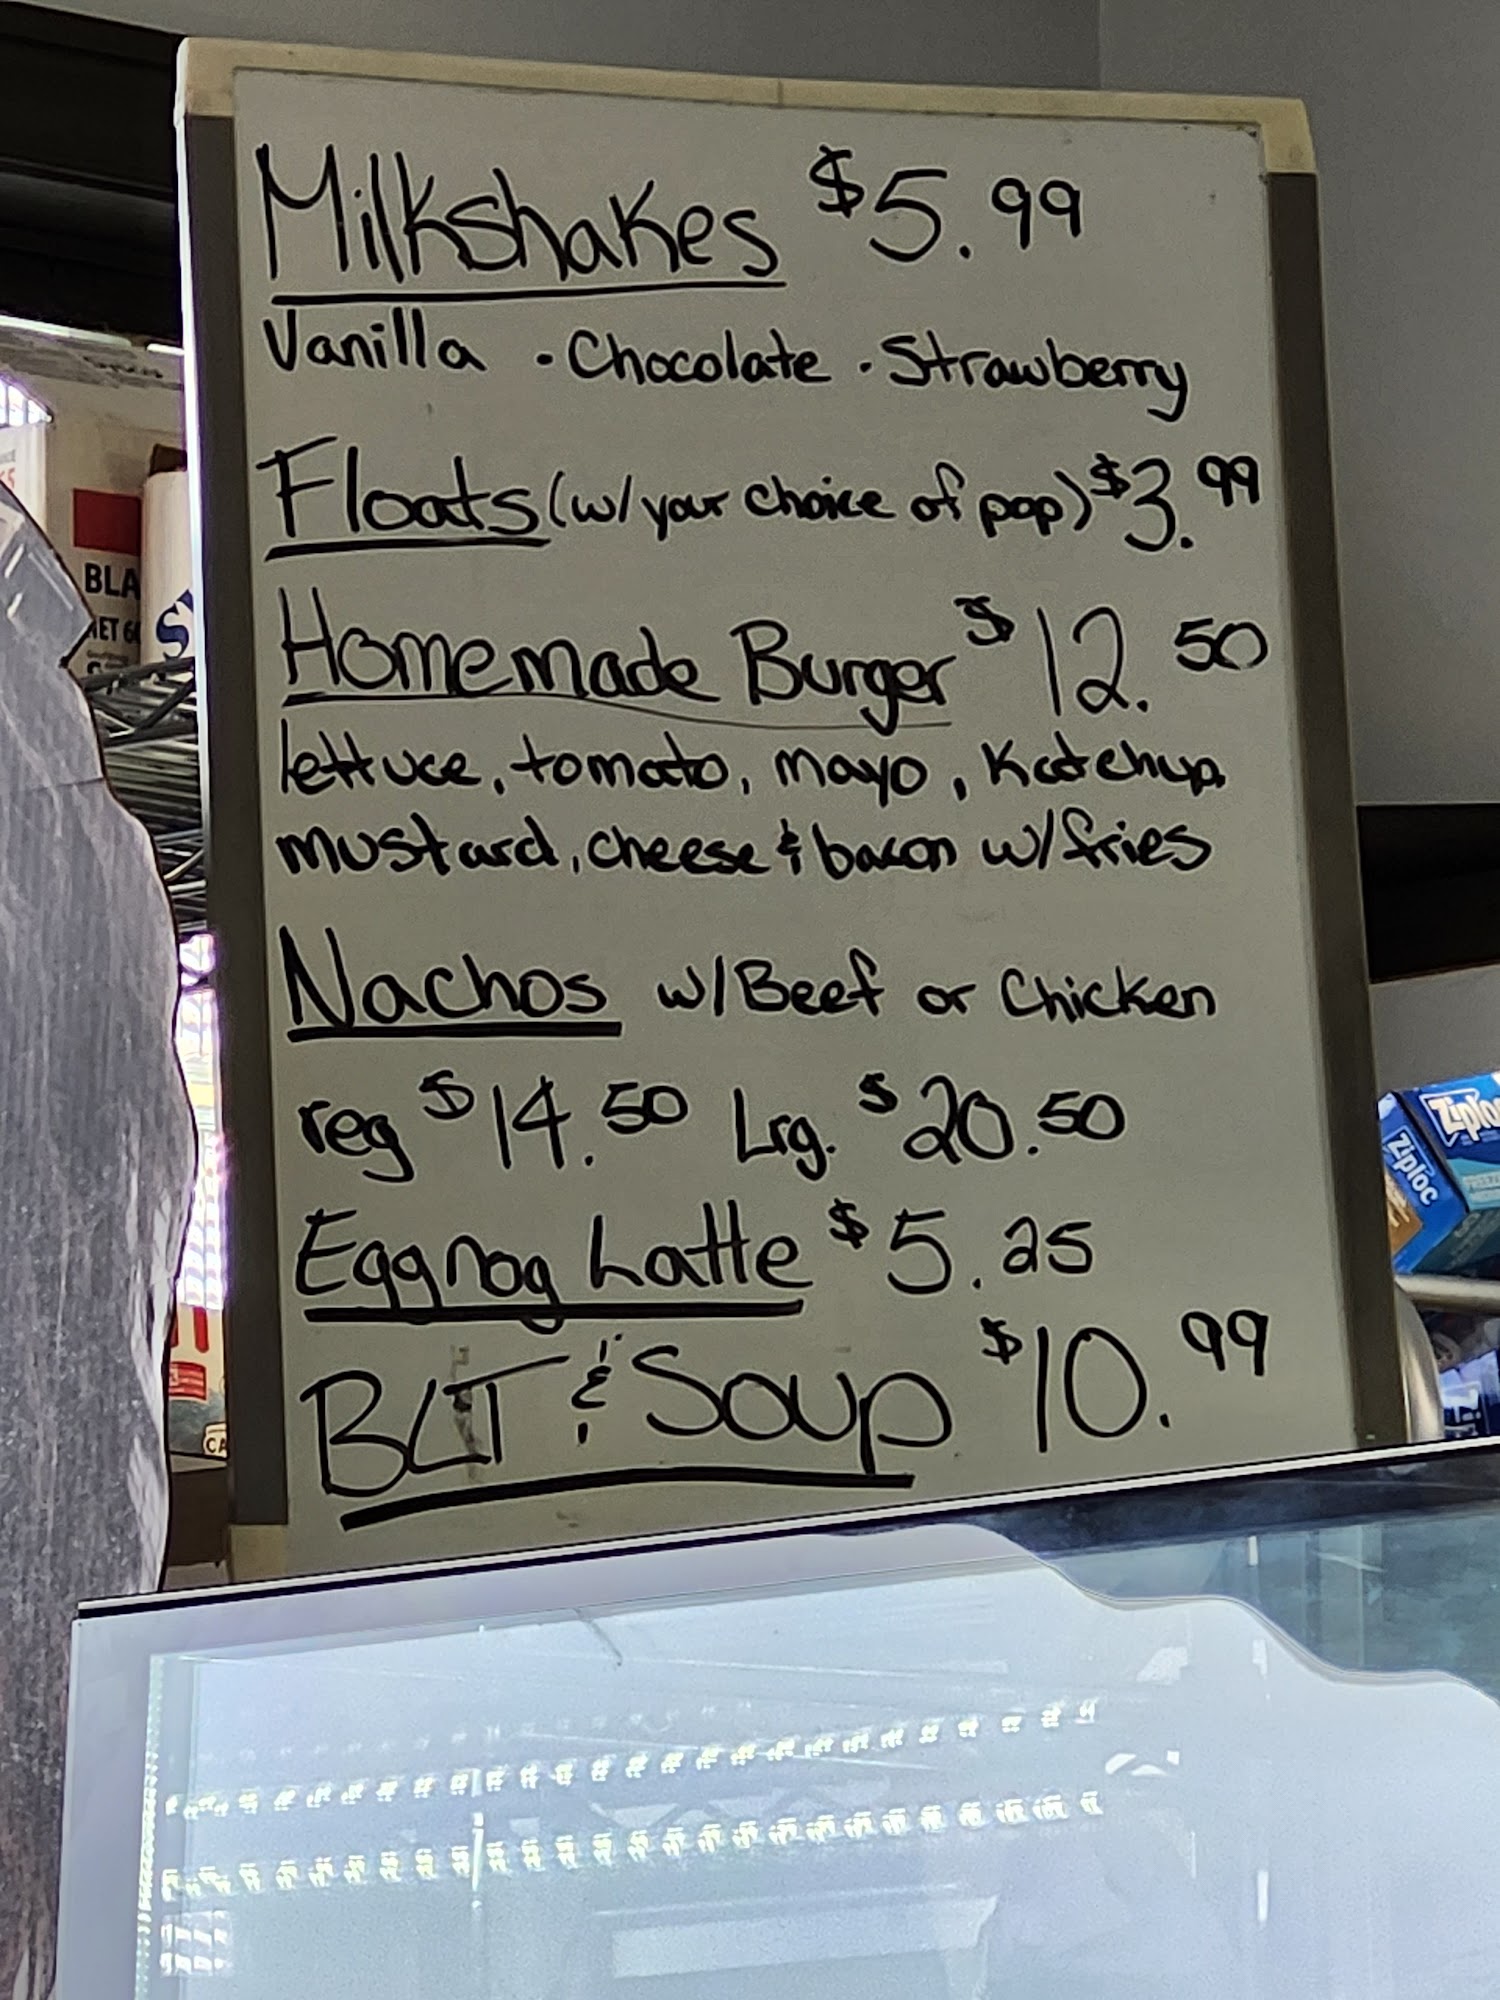 Milkshakes $5.99
Vanilla · Chocolate · Strawberry
Floats (w/your choice of pop) $3.99
Homemade Burger $12.50
lettuce, tomato, mayo, Katchup
mustard, cheese & bacon w/fries
Nachos w/Beef or Chicken
reg $14.50 Lrg. $20.50
Eggnog Latte $5.25
BLT & Soup $10.99
BLA
Ziploc
Ziploc